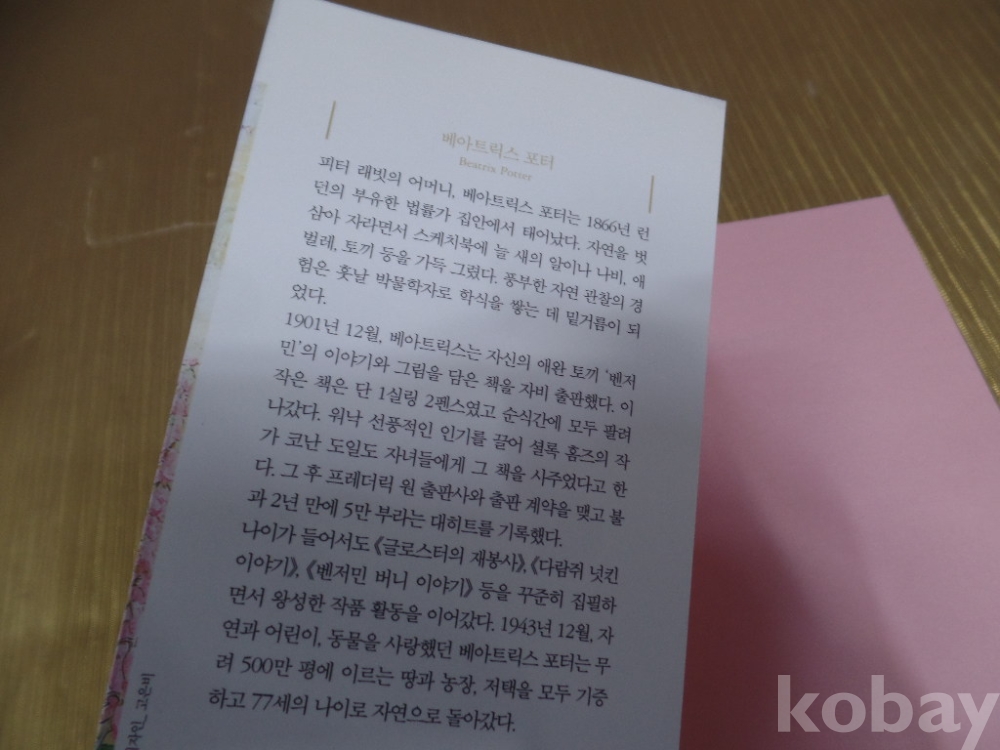 베아트릭스 포터
Beatrix Potter
피터 래빗의 어머니, 베아트릭스 포터는 1866년 런
던의 부유한 법률가 집안에서 태어났다. 자연을 벗
삼아 자라면서 스케치북에 늘 새의 알이나 나비, 애
벌레, 토끼 등을 가득 그렸다. 풍부한 자연 관찰의 경
험은 훗날 박물학자로 학식을 쌓는 데 밑거름이 되
었다.
1901년 12월, 베아트릭스는 자신의 애완 토끼 ‘벤저
민’의 이야기와 그림을 담은 책을 자비 출판했다. 이
작은 책은 단 1실링 2펜스였고 순식간에 모두 팔려
나갔다. 워낙 선풍적인 인기를 끌어 셜록 홈즈의 작
가 코난 도일도 자녀들에게 그 책을 사주었다고 한
다. 그 후 프레더릭 원 출판사와 출판 계약을 맺고 불
과 2년 만에 5만 부라는 대히트를 기록했다.
나이가 들어서도 《글로스터의 재봉사》, 《다람쥐 넛킨
이야기》, 《벤저민 버니 이야기》 등을 꾸준히 집필하
면서 왕성한 작품 활동을 이어갔다. 1943년 12월, 자
연과 어린이, 동물을 사랑했던 베아트릭스 포터는 무
려 500만 평에 이르는 땅과 농장, 저택을 모두 기증
하고 77세의 나이로 자연으로 돌아갔다.
자인_고은비
kobay